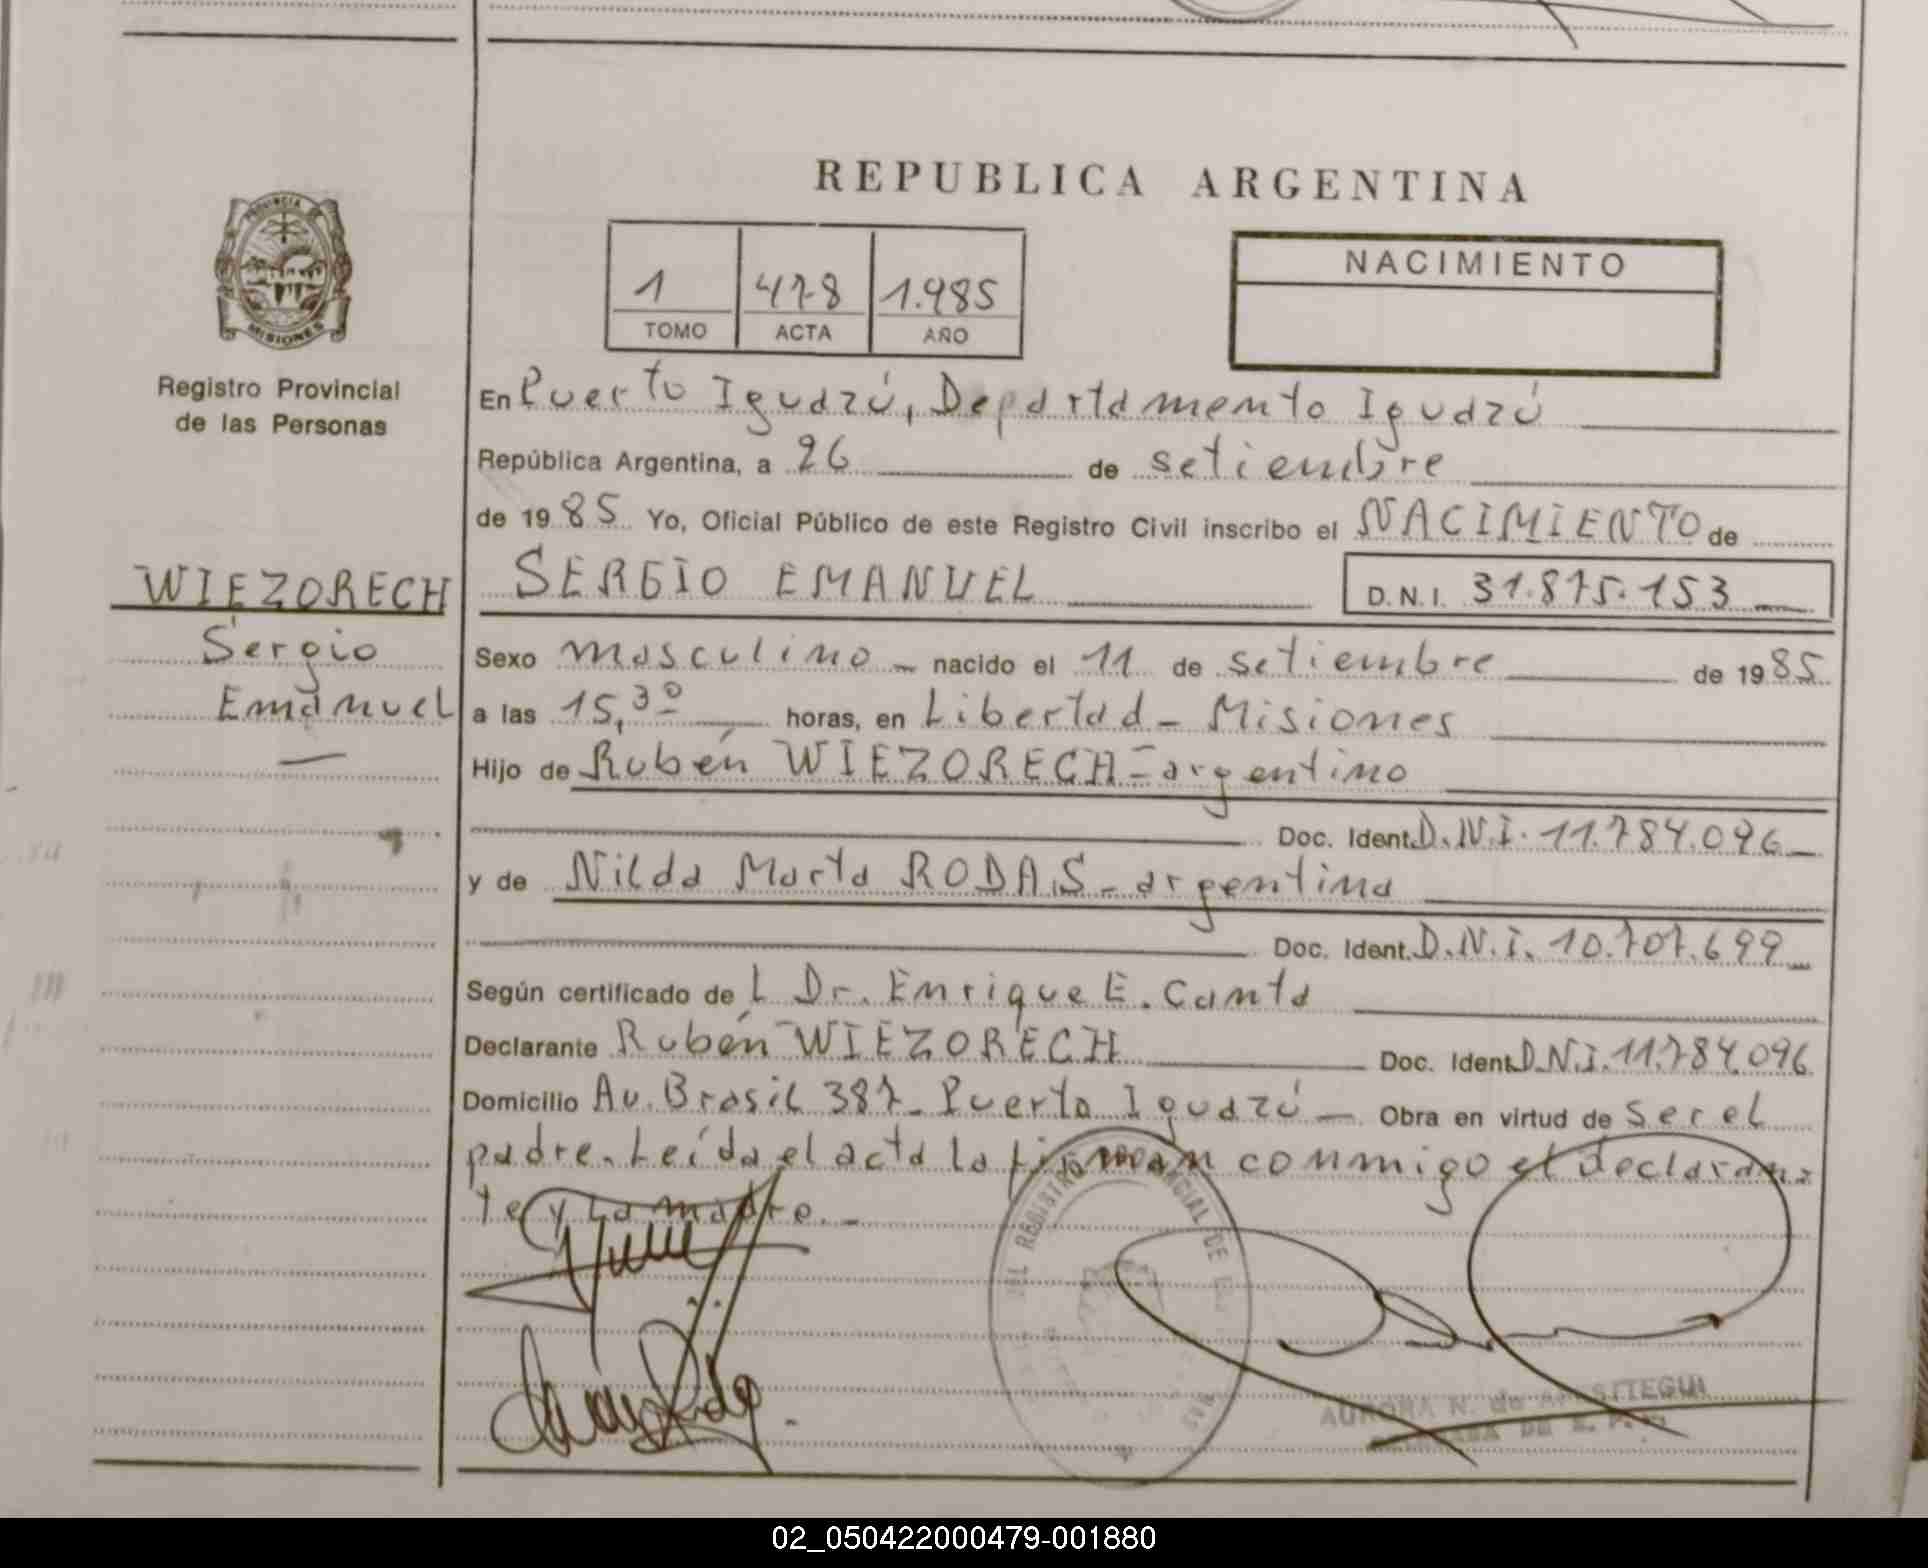 REPUBLICA ARGENTINA
PROVINCIA DE
MISIONES
Registro Provincial
de las Personas
1 478 1.985
TOMO ACTA AÑO
NACIMIENTO
En Puerto Iguazú, Departamento Iguazú
República Argentina, a 26 de setiembre
de 1985 Yo, Oficial Público de este Registro Civil inscribo el NACIMIENTO de
WIEZORECH
Sergio
Emanuel
SERGIO EMANUEL D.N.I. 31.875.153
Sexo masculino nacido el 11 de setiembre de 1985
a las 15,30 horas, en Libertad - Misiones
Hijo de Rubén WIEZORECH - argentino
Doc. Ident. D.N.I. 11.784.096
y de Nilda Marta RODAS - argentina
Doc. Ident. D.N.I. 10.707.699
Según certificado de L Dr. Enrique E. Canta
Declarante Rubén WIEZORECH Doc. Ident. D.N.I. 11.784.096
Domicilio Av. Brasil 387 - Puerto Iguazú - Obra en virtud de ser el
padre. Leída el acta la firman conmigo el declaran
te y la madre. -
REGISTRO PROVINCIAL DE
AURORA N. de
02_050422000479-001880